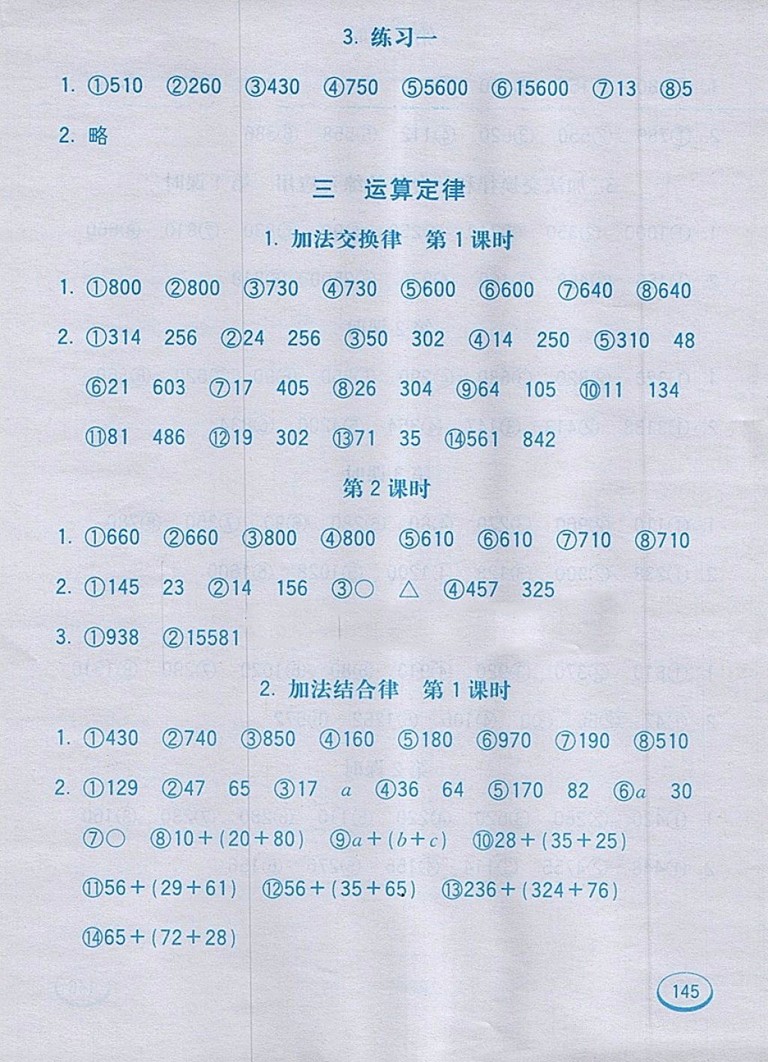 3. 练习一
1. ①510 ②260 ③430 ④750 ⑤5600 ⑥15600 ⑦13 ⑧5
2. 略
三 运算定律
1. 加法交换律 第1课时
1. ①800 ②800 ③730 ④730 ⑤600 ⑥600 ⑦640 ⑧640
2. ①314 256 ②24 256 ③50 302 ④14 250 ⑤310 48
⑥21 603 ⑦17 405 ⑧26 304 ⑨64 105 ⑩11 134
⑪81 486 ⑫19 302 ⑬71 35 ⑭561 842
第2课时
1. ①660 ②660 ③800 ④800 ⑤610 ⑥610 ⑦710 ⑧710
2. ①145 23 ②14 156 ③○ △ ④457 325
3. ①938 ②15581
2. 加法结合律 第1课时
1. ①430 ②740 ③850 ④160 ⑤180 ⑥970 ⑦190 ⑧510
2. ①129 ②47 65 ③17 a ④36 64 ⑤170 82 ⑥a 30
⑦○ ⑧10+(20+80) ⑨a+(b+c) ⑩28+(35+25)
⑪56+(29+61) ⑫56+(35+65) ⑬236+(324+76)
⑭65+(72+28)
145